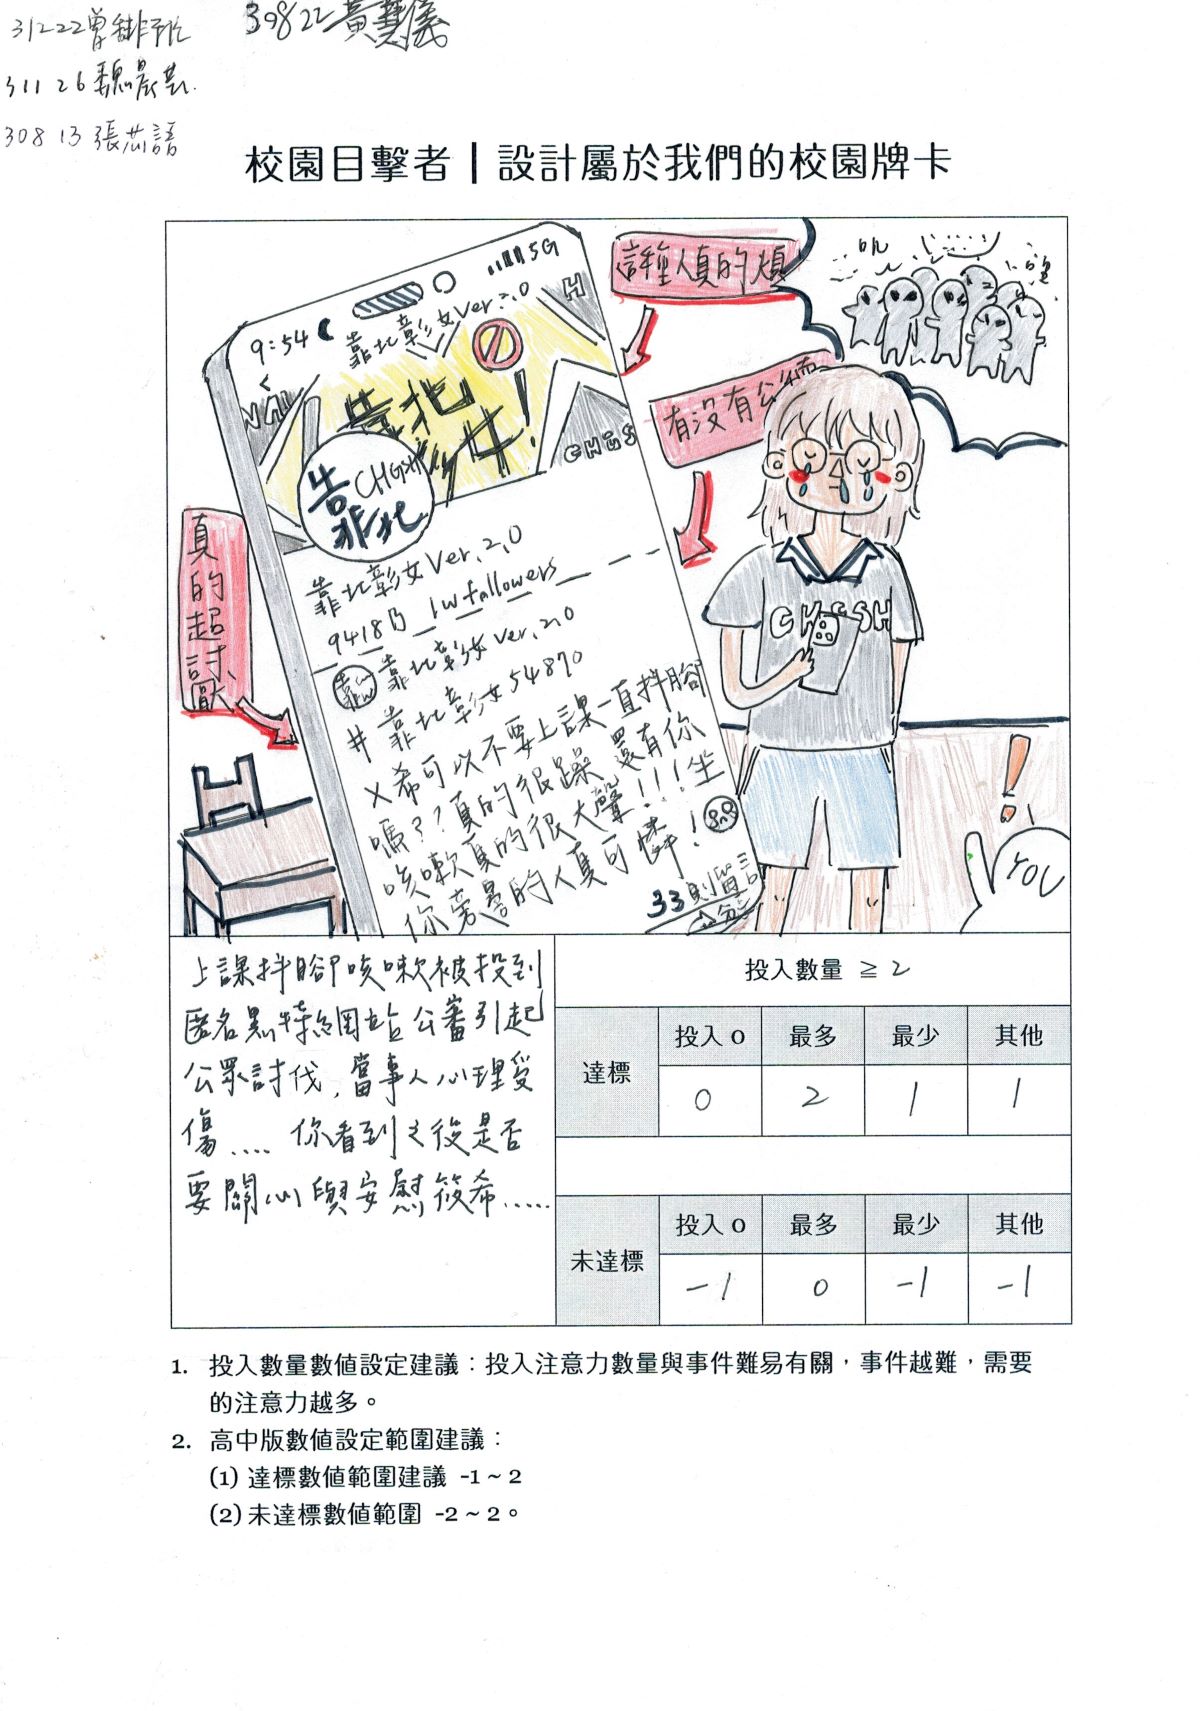 31222曾
30822黃慧儀
31126魏晨
30813張芯語
校園目擊者｜設計屬於我們的校園牌卡
5G
9:54
靠北彰女Ver 2.0
H
靠北
彰女!
CHGSH
CHGS
靠北
靠北彰女Ver.2.0
9418乃_1w followers
靠北彰女Ver.2.0
#靠北彰女54870
X希可以不要上課一直抖腳
嗎??真的很躁 還有你
咳嗽真的很大聲!!!坐
你旁邊的人真可憐!
33則留言
這種人真的煩
有沒有公德
真的超討厭
CHGSH
YOU
上課抖腳咳嗽被投到
匿名黑特網站公審引起
公眾討伐,當事人心理受
傷.... 你看到之後是否
要關心與安慰筱希.....
投入數量 ≧ 2
達標
投入 0 最多 最少 其他
0 2 1 1
未達標
投入 0 最多 最少 其他
-1 0 -1 -1
1. 投入數量數值設定建議：投入注意力數量與事件難易有關，事件越難，需要
的注意力越多。
2. 高中版數值設定範圍建議：
(1) 達標數值範圍建議 -1 ~ 2
(2) 未達標數值範圍 -2 ~ 2。